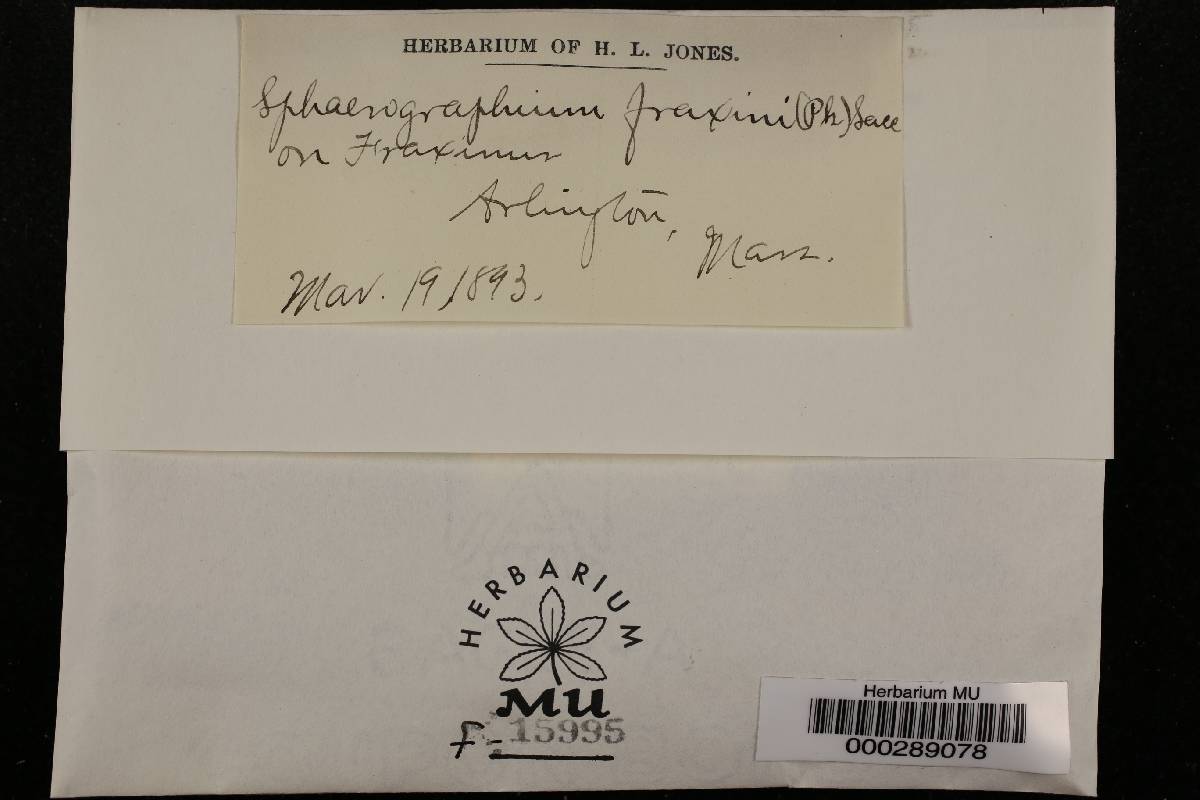 HERBARIUM OF H. L. JONES.
Sphaerographium fraxini (Pk) Sacc
on Fraxinus
Arlington, Mass.
Mar. 19, 1893.
HERBARIUM
MU
F- 15995
Herbarium MU
000289078